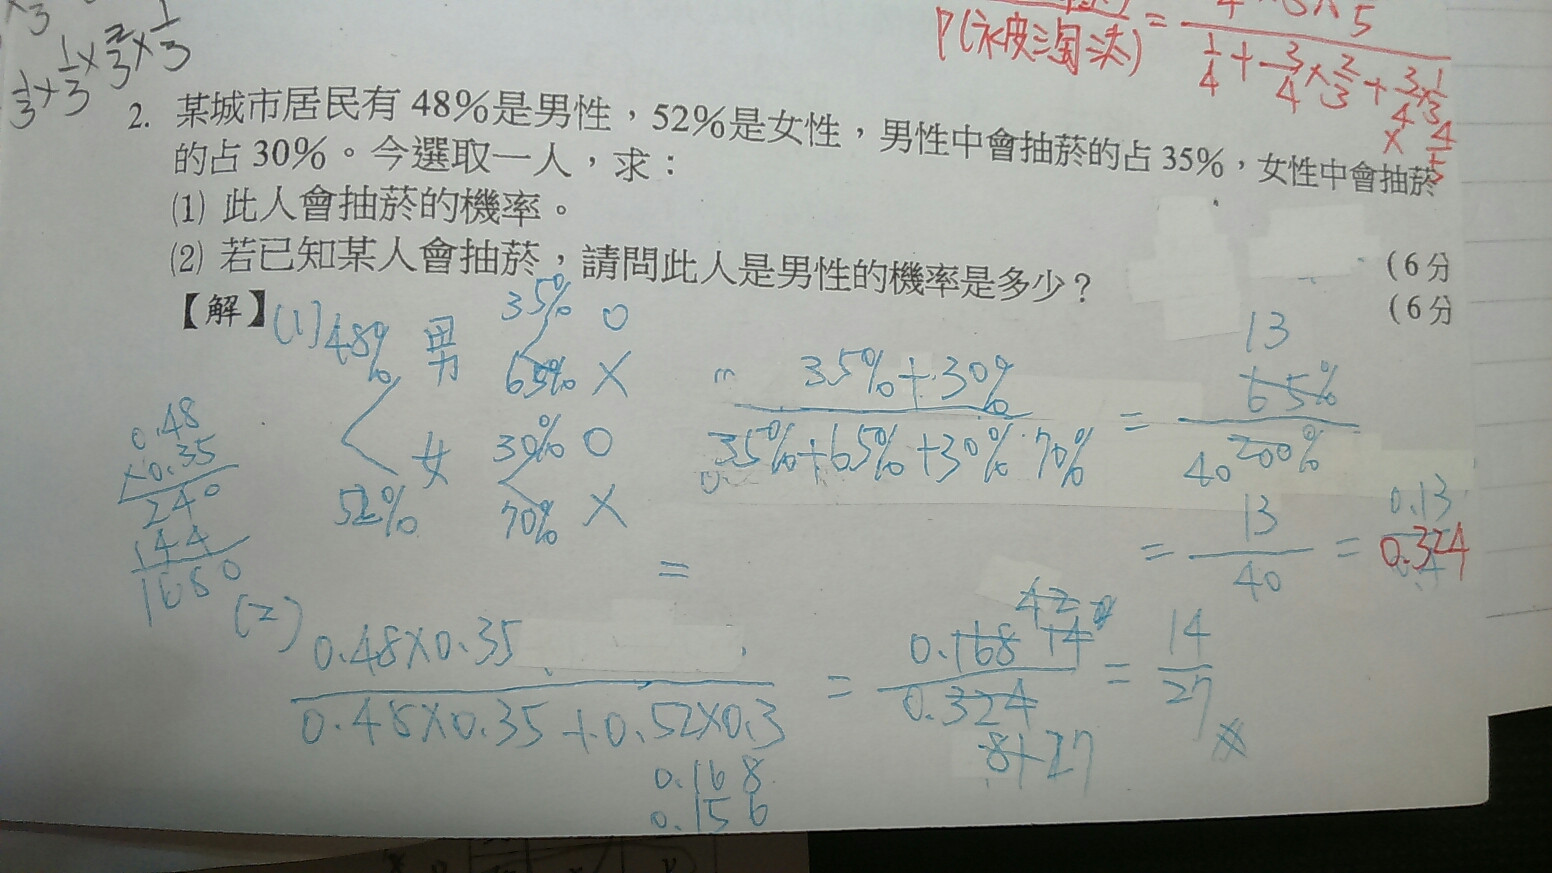 1/3 × 1/3 × 2/3 × 1/3
P(被淘汰) = / 1/4 + 3/4 × 2/3 + 3/4 × 1/3 × 4/5
2. 某城市居民有 48%是男性，52%是女性，男性中會抽菸的占 35%，女性中會抽菸
的占 30%。今選取一人，求：
(1) 此人會抽菸的機率。
(6分
(2) 若已知某人會抽菸，請問此人是男性的機率是多少？
(6分
【解】(1) 48% 男 35% O
65% X
52% 女 30% O
70% X
35%+30% / 35%+65%+30% 70% = 13 65% / 40 200%
= 13/40 = 0.324
0.13
0.48
×0.35
240
144
1680
=
(2) 0.48×0.35 / 0.48×0.35+0.52×0.3 = 0.168 42 14 / 0.324 81 27 = 14/27
0.168
0.156